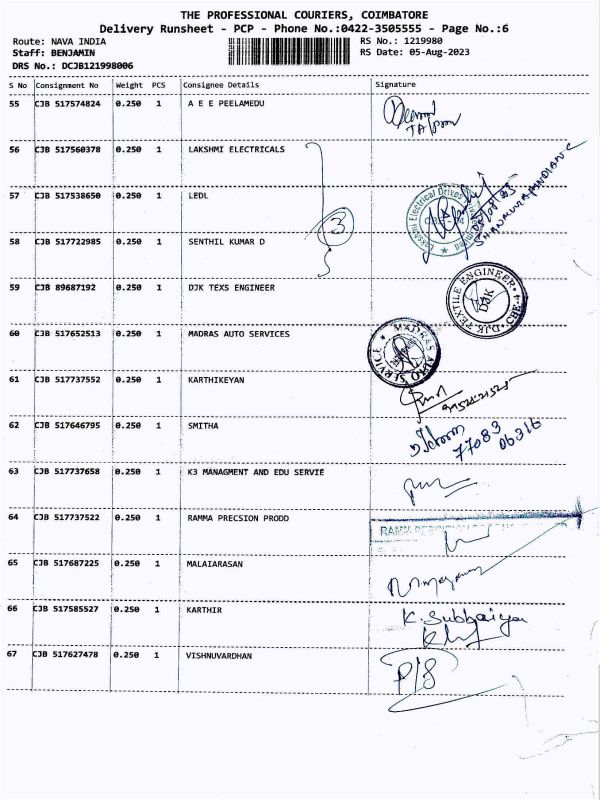 THE PROFESSIONAL COURIERS, COIMBATORE
Delivery Runsheet - PCP - Phone No.:0422-3505555 - Page No.:6
Route: NAVA INDIA RS No.: 1219980
Staff: BENJAMIN RS Date: 05-Aug-2023
DRS No.: DCJB121998006
S No Consignment No Weight PCS Consignee Details Signature
55 CJB 517574824 0.250 1 A E E PEELAMEDU
56 CJB 517560378 0.250 1 LAKSHMI ELECTRICALS
57 CJB 517538650 0.250 1 LEDL
3
58 CJB 517722985 0.250 1 SENTHIL KUMAR D
59 CJB 89687192 0.250 1 DJK TEXS ENGINEER
DJK TEXTILE ENGINEER CBE-4
60 CJB 517652513 0.250 1 MADRAS AUTO SERVICES
MADRAS AUTO SERVICE
61 CJB 517737552 0.250 1 KARTHIKEYAN
62 CJB 517646795 0.250 1 SMITHA
77083
06316
63 CJB 517737658 0.250 1 K3 MANAGMENT AND EDU SERVIE
64 CJB 517737522 0.250 1 RAMMA PRECSION PRODD
65 CJB 517687225 0.250 1 MALAIARASAN
66 CJB 517585527 0.250 1 KARTHIR
K. Subbaiya
67 CJB 517627478 0.250 1 VISHNUVARDHAN
P/S